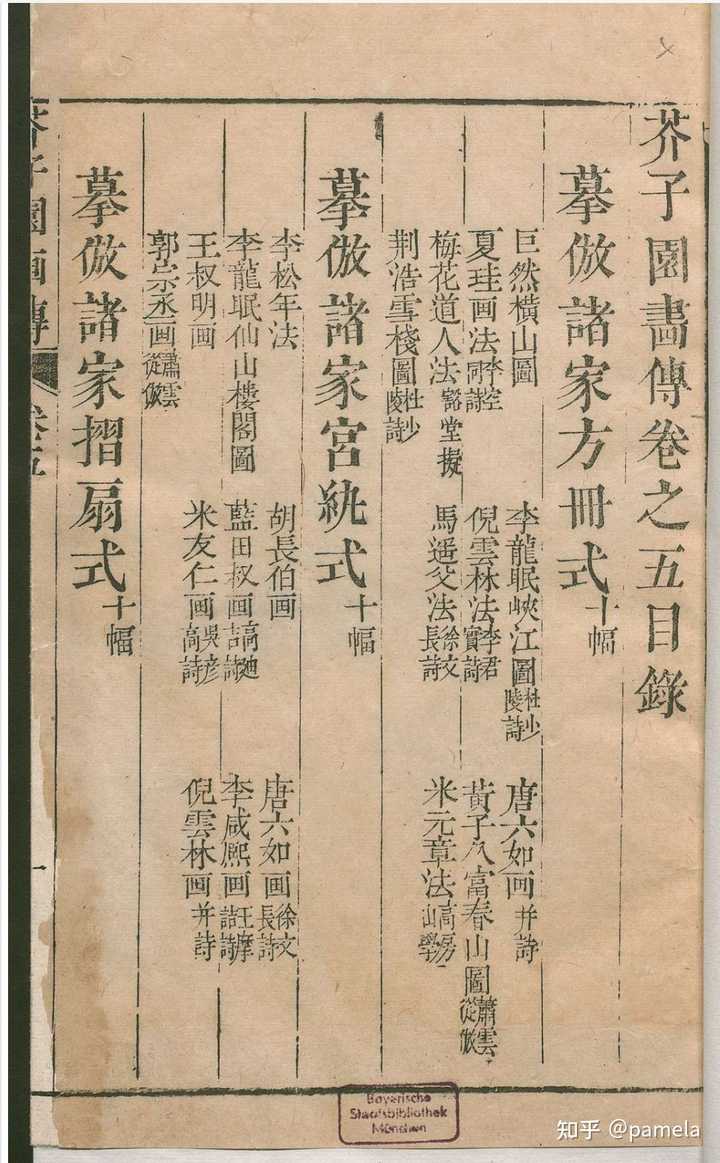 芥子園畵傳卷之五目錄
摹倣諸家方冊式十幅
巨然橫山圖 李龍眠峽江圖杜少陵詩 唐六如画并詩
夏珪画法李空同詩 倪雲林法李君實詩 黃子久富春山圖蕭雲從倣
梅花道人法谿堂擬 馬遥父法徐文長詩 米元章法高房山學
荆浩雪棧圖杜少陵詩
摹倣諸家宮紈式十幅
李松年法 胡長伯画 唐六如画徐文長詩
李龍眠仙山樓閣圖 藍田叔画高廸吉詩 李咸熈画王摩詰詩
王叔明画 米友仁画吳彦高詩 倪雲林画并詩
郭宗丞画蕭雲從倣
摹倣諸家摺扇式十幅
芥子園画傳 卷五 一
Bayerische
Staatsbibliothek
München
知乎 @pamela